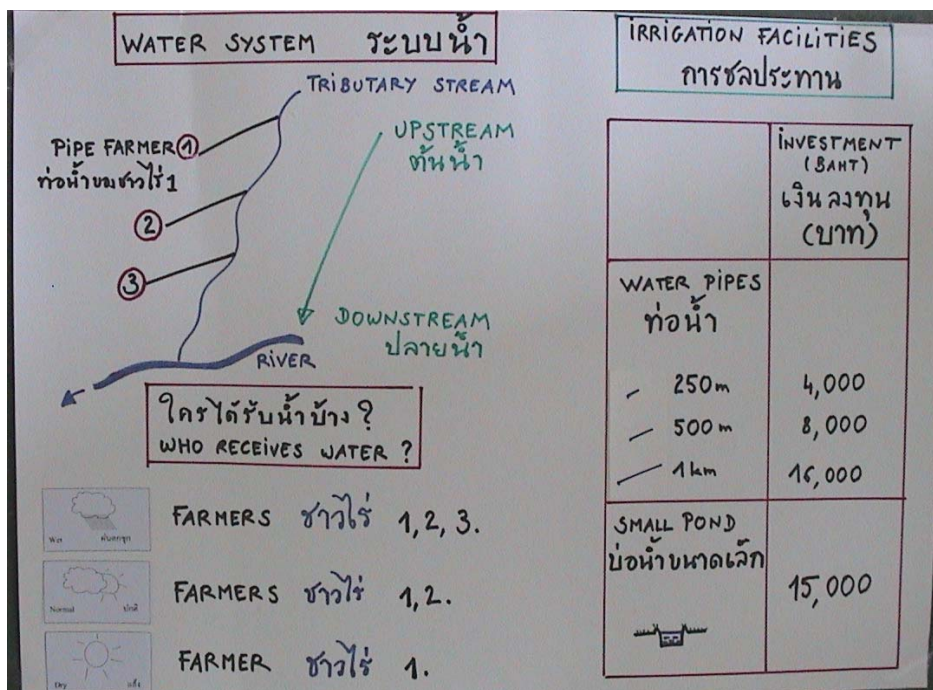 WATER SYSTEM ระบบน้ำ
TRIBUTARY STREAM
PIPE FARMER 1
ท่อน้ำของชาวไร่ 1
2
3
UPSTREAM
ต้นน้ำ
DOWNSTREAM
ปลายน้ำ
RIVER
ใครได้รับน้ำบ้าง ?
WHO RECEIVES WATER ?
Wet ฝนตกชุก
FARMERS ชาวไร่ 1, 2, 3.
Normal ปกติ
FARMERS ชาวไร่ 1, 2.
Dry แล้ง
FARMER ชาวไร่ 1.
IRRIGATION FACILITIES
การชลประทาน
INVESTMENT
(BAHT)
เงินลงทุน
(บาท)
WATER PIPES
ท่อน้ำ
250m 4,000
500m 8,000
1km 16,000
SMALL POND
บ่อน้ำขนาดเล็ก
15,000